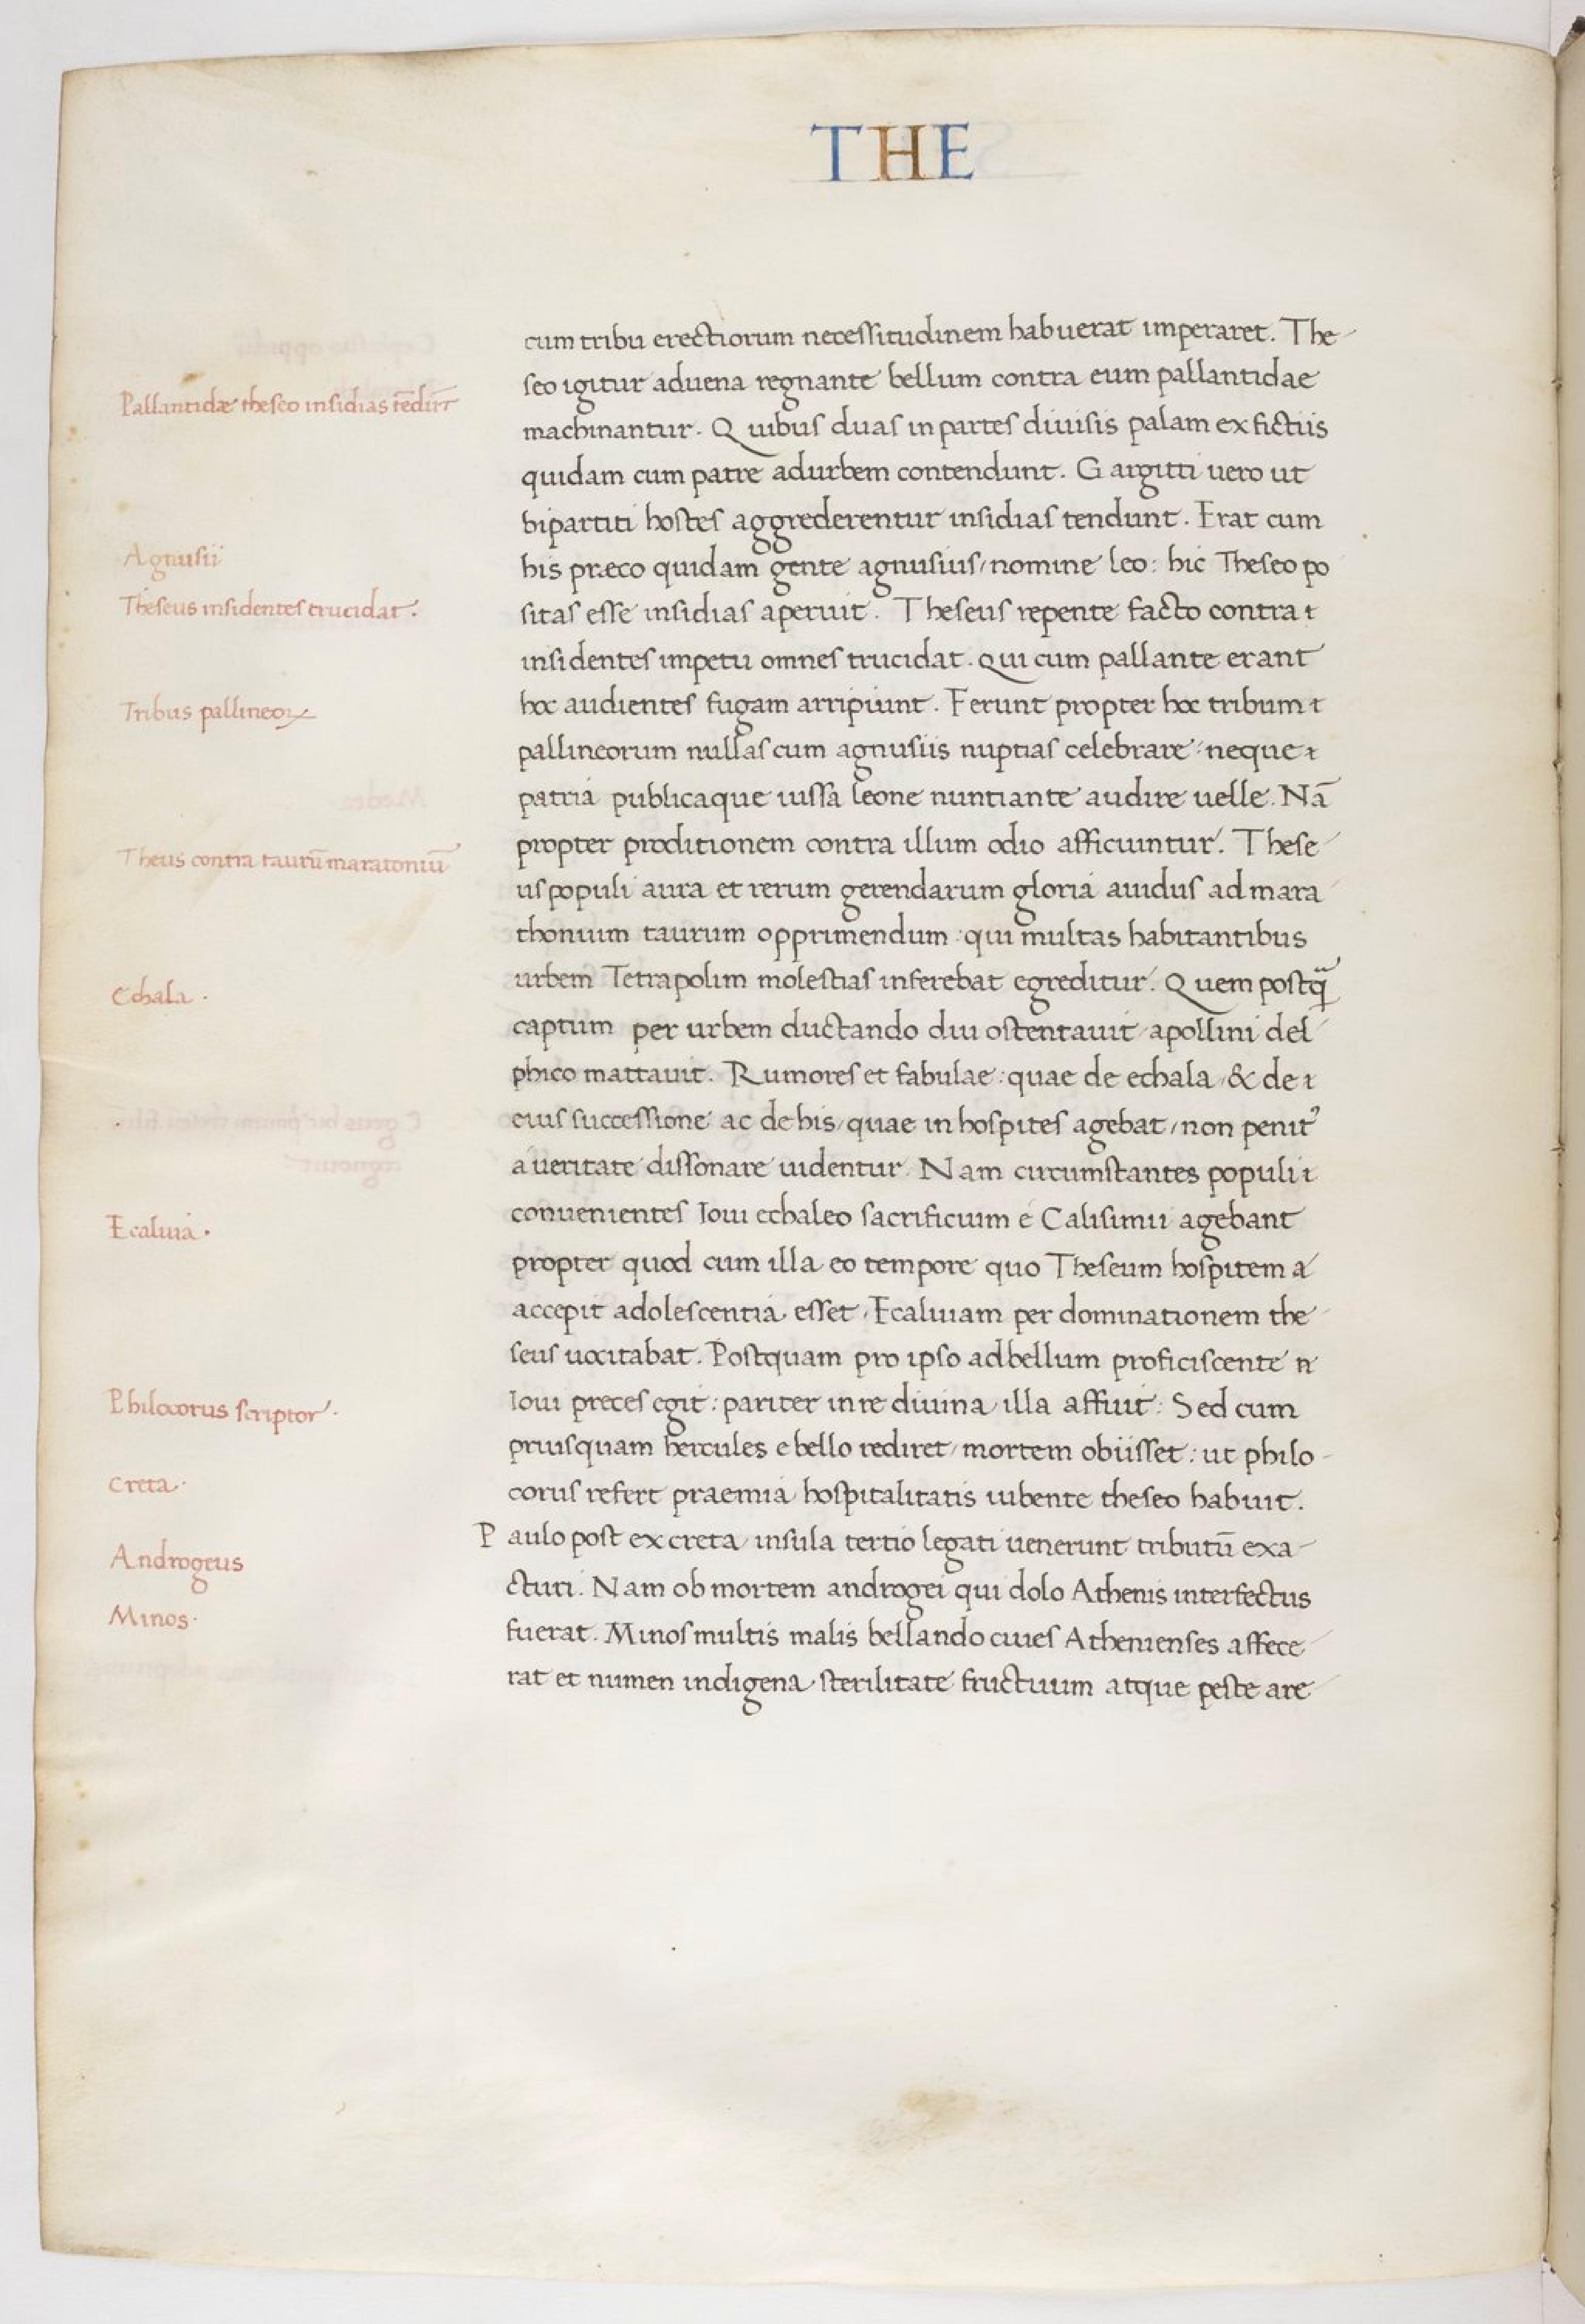 THE
cum tribu erectiorum necessitudinem habuerat imperaret. The-
seo igitur aduena regnante bellum contra eum pallantidae
Pallantidæ theseo insidias tēdūt
machinantur. Quibus duas in partes diuisis palam ex fictiis
quidam cum patre ad urbem contendunt. Gargitti uero ut
bipartiti hostes aggrederentur insidias tendunt. Erat cum
Agnusii
his præco quidam gente agnusius, nomine leo: hic Theseo po
Theseus insidentes trucidat.
sitas esse insidias aperuit. Theseus repente facto contra
insidentes impetu omnes trucidat. Qui cum pallante erant
Tribus pallineoꝝ
hoc audientes fugam arripiunt. Ferunt propter hoc tribum
pallineorum nullas cum agnusiis nuptias celebrare: neque
patria publicaque iussa leone nuntiante audire uelle. Nā
propter proditionem contra illum odio afficiuntur. These-
Theus contra taurū maratoniū
us populi aura et rerum gerendarum gloria auidus ad mara-
thonium taurum opprimendum: qui multas habitantibus
urbem Tetrapolim molestias inferebat egreditur. Quem postq̃
Echala.
captum per urbem ductando diu ostentauit apollini del-
phico mattauit. Rumores et fabulae: quae de echala, & de
eius successione ac de his, quae in hospites agebat, non penit᾿
a ueritate dissonare uidentur. Nam circumstantes populi
conuenientes Ioui echaleo sacrificium e Calisimii agebant
Ecaluia.
propter quod cum illa eo tempore quo Theseum hospitem a
accepit adolescentia esset, Ecaluiam per dominationem the-
seus uocitabat. Postquam pro ipso ad bellum proficiscente
Ioui preces egit: pariter in re diuina illa affuit: Sed cum
Philocorus scriptor.
priusquam hercules e bello rediret, mortem obiisset: ut philo-
creta.
corus refert praemia hospitalitatis iubente theseo habuit.
Paulo post ex creta insula tertio legati uenerunt tributū exa-
Androgeus
cturi. Nam ob mortem androgei qui dolo Athenis interfectus
Minos.
fuerat. Minos multis malis bellando ciues Athenienses affece-
rat et numen indigena sterilitate fructuum atque peste are-